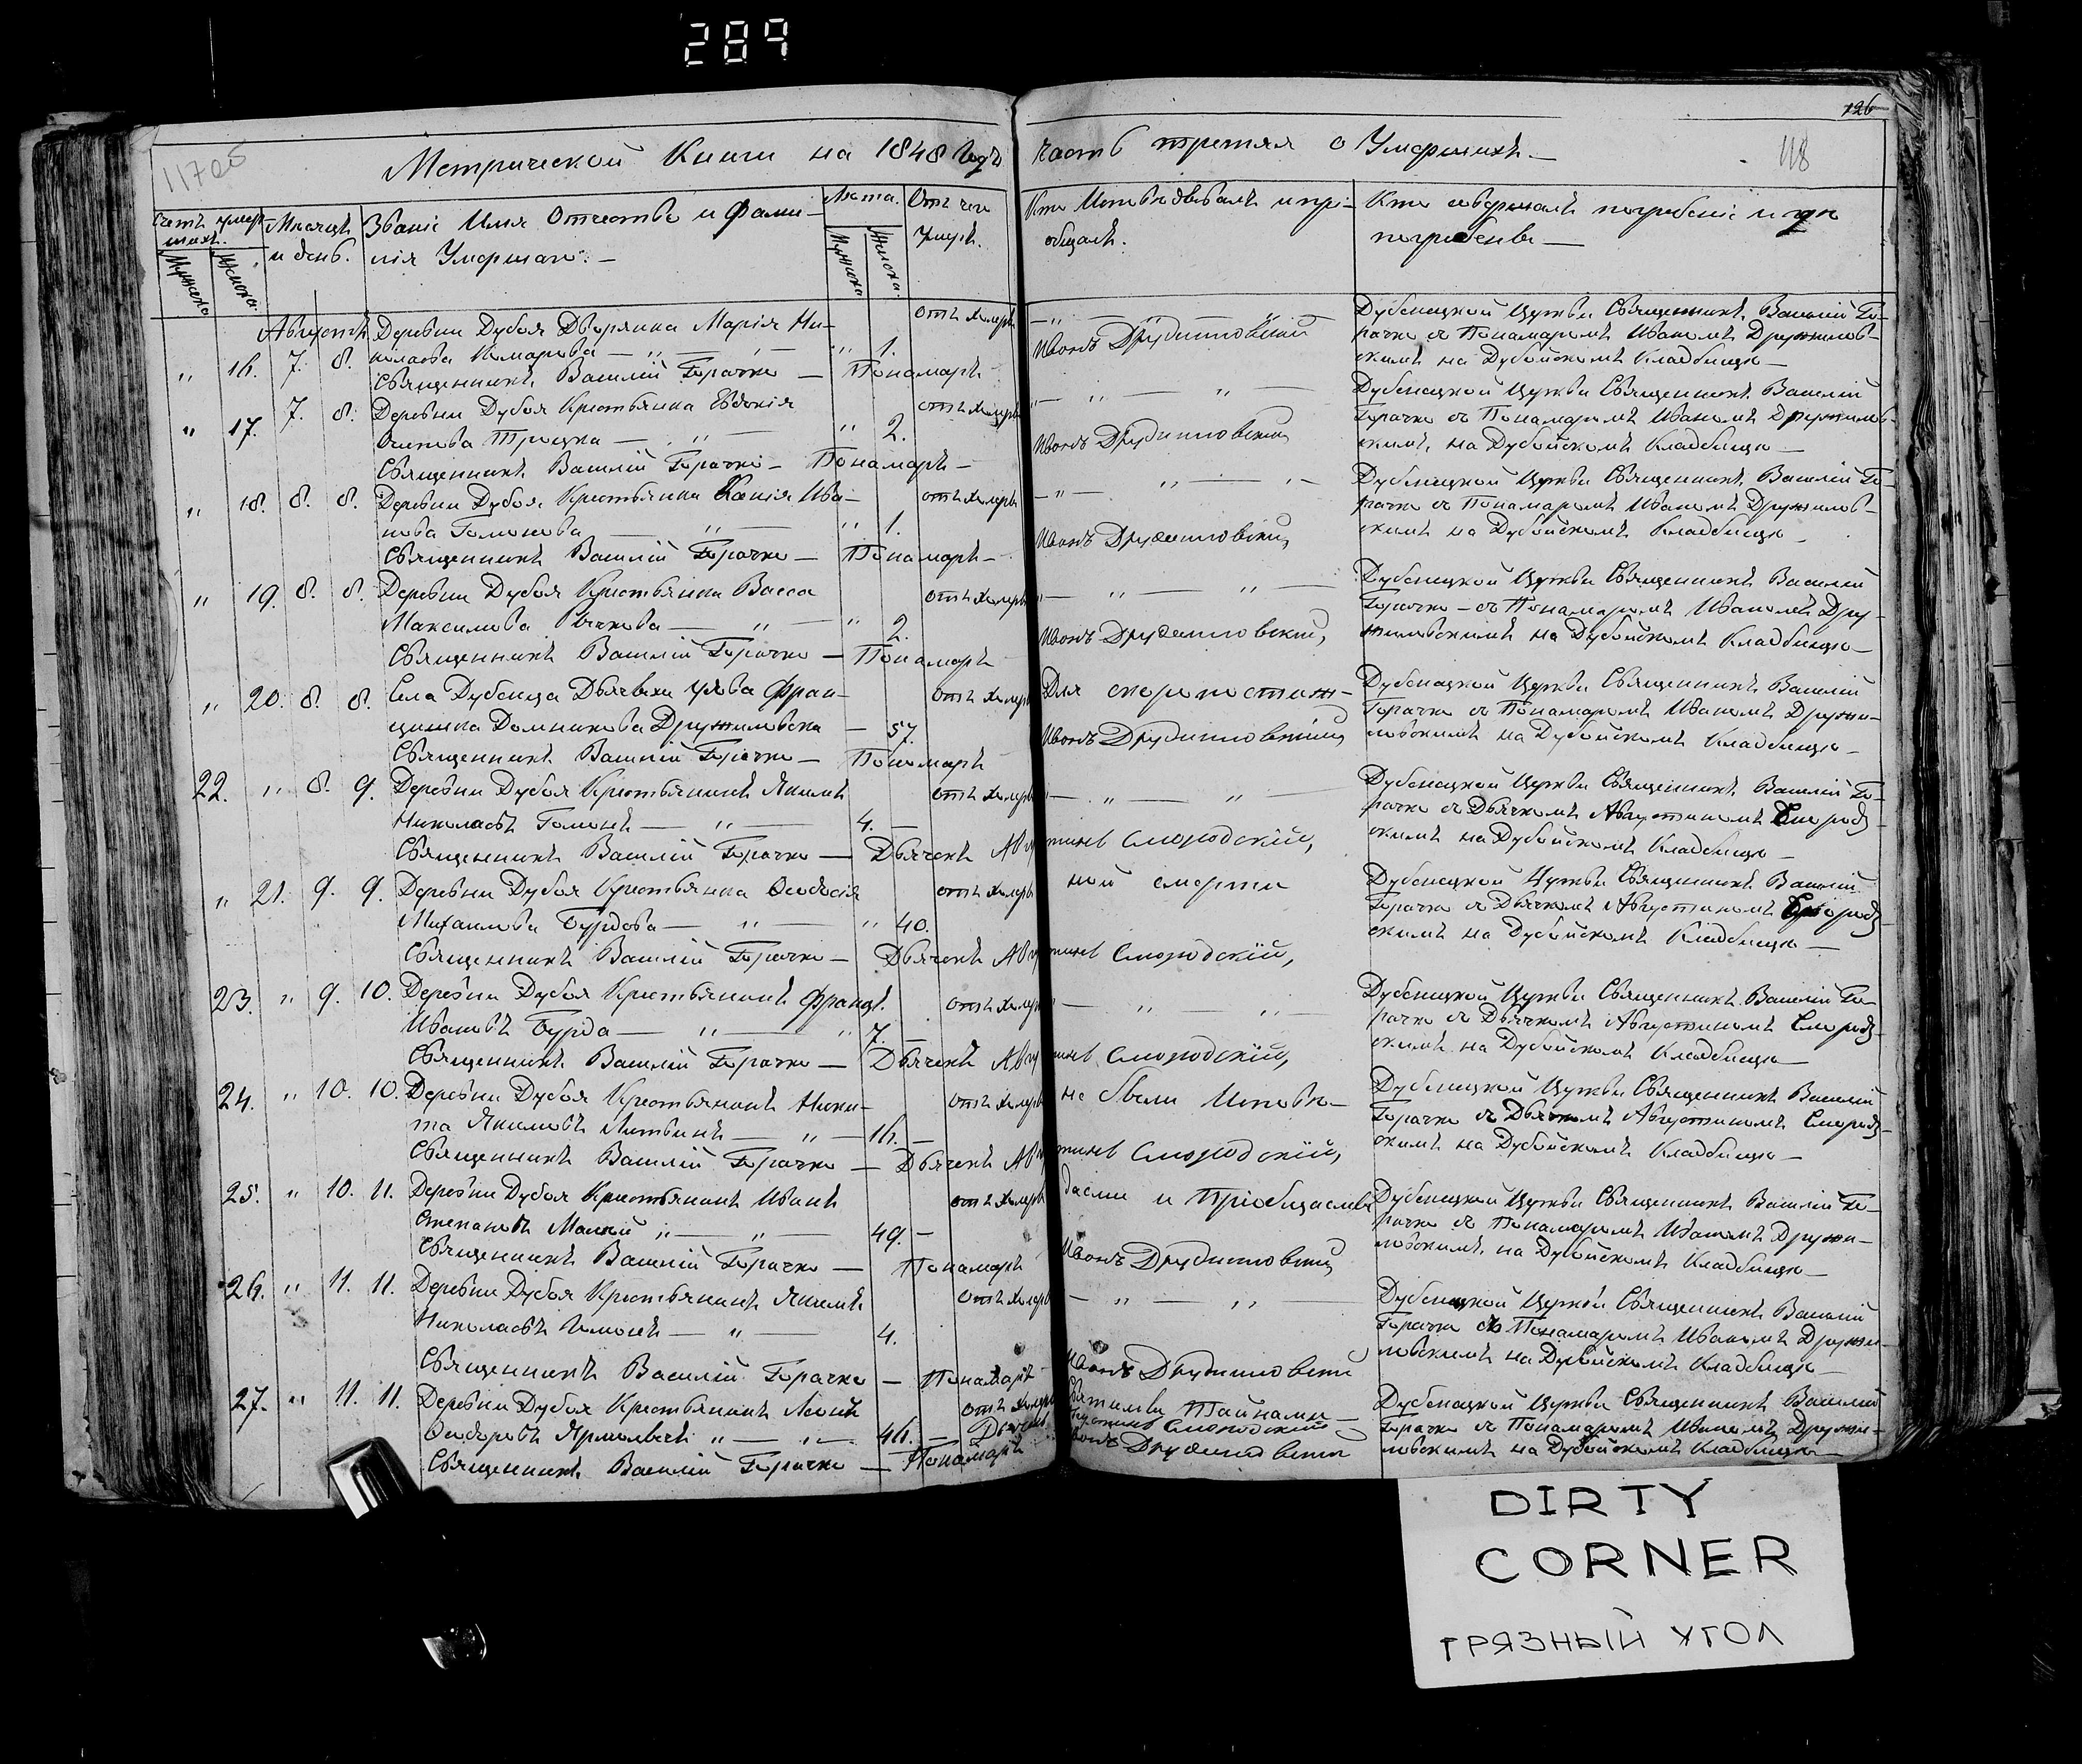 289
126
118
Метрической Книги на 1848 Годъ
часть третяя о Умершихъ. —
Счетъ умершихъ.
Мужеска
Женска.
Мѣсяцъ и день.
Званіе Имя Отчество и Фами-
лія Умершаго. —
Лѣта.
Мужеска
Женска.
Отъ чего Умеръ.
Кто Исповѣдывалъ и прі-
общалъ.
Кто совершалъ погребеніе и гдѣ
погребены —
Августъ Деревни Дубоя Дворянка Марія Ни- отъ холеры
" 16. 7. 8. колаева Комарова — " — " 1.
Священникъ Василій Горачко — Понамарь Иванъ Дружиловскій
Дубеницкой Церкви Священникъ Василій Го-
рачко съ Понамаремъ Иваномъ Дружилов-
скимъ на Дубойскомъ Кладбищѣ —
" 17. 7. 8. Деревни Дубоя Крестьянка Евдокія отъ холеры
Осипова Троцка — " — " 2.
Священникъ Василій Горачко — Понамарь — Иванъ Дружиловскій
Дубеницкой Церкви Священникъ Василій
Горачко съ Понамаремъ Иваномъ Дружилов-
скимъ, на Дубойскомъ Кладбищѣ —
" 18. 8. 8. Деревни Дубоя Крестьянка Ксенія Ива- отъ холеры
нова Гомонова — " — " 1.
Священникъ Василій Горачко — Понамарь — Иванъ Дружиловскій,
Дубеницкой Церкви Священникъ Василій Го-
рачко съ Понамаремъ Иваномъ Дружилов-
скимъ на Дубойскомъ Кладбищѣ —
" 19. 8. 8. Деревни Дубоя Крестьянка Васса отъ холеры
Максимова — " — " 2.
Священникъ Василій Горачко — Понамарь Иванъ Дружиловскій,
Дубеницкой Церкви Священникъ Василій
Горачко — съ Понамаремъ Иваномъ Дру-
жиловскимъ на Дубойскомъ Кладбищѣ —
" 20. 8. 8. Села Дубеница Дьячиха вдова Фран- отъ холеры Для скоропостиж-
цишка Домникова Дружиловска — 57.
Священникъ Василій Горачко — Понамарь Иванъ Дружиловскій
Дубеницкой Церкви Священникъ Василій
Горачко съ Понамаремъ Иваномъ Дружи-
ловскимъ на Дубойскомъ Кладбищѣ —
22. " 8. 9. Деревни Дубоя Крестьянинъ Якимъ отъ холеры
Николаевъ Гомонъ — " — 4. —
Священникъ Василій Горачко — Дьячекъ Августинъ Смородскій,
Дубеницкой Церкви Священникъ Василій Го-
рачко съ Дьячкомъ Августиномъ Смород-
скимъ на Дубойскомъ Кладбищѣ —
" 21. 9. 9. Деревни Дубоя Крестьянка Ѳеодосія отъ холеры ной смерти
Михаилова Бурдова — " — " 40.
Священникъ Василій Горачко — Дьячекъ Августинъ Смородскій,
Дубеницкой Церкви Священникъ Василій
Горачко съ Дьячкомъ Августиномъ Смород-
скимъ на Дубойскомъ Кладбищѣ —
23. " 9. 10. Деревни Дубоя Крестьянинъ Францъ. отъ холеры
Ивановъ Бурда — " — " 7.
Священникъ Василій Горачко — Дьячекъ Августинъ Смородскій,
Дубеницкой Церкви Священникъ Василій Го-
рачко съ Дьячкомъ Августиномъ Смород-
скимъ на Дубойскомъ Кладбищѣ —
24. " 10. 10. Деревни Дубоя Крестьянинъ Ники- отъ холеры не были Исповѣ-
та Якимовъ Литвинъ — " — 16. —
Священникъ Василій Горачко — Дьячекъ Августинъ Смородскій,
Дубеницкой Церкви Священникъ Василій
Горачко съ Дьячкомъ Августиномъ Смород-
скимъ на Дубойскомъ Кладбищѣ —
25. " 10. 11. Деревни Дубоя Крестьянинъ Иванъ отъ холеры даемы и Пріобщаемы
Степановъ Малый " — " — 49. —
Священникъ Василій Горачко — Понамарь Иванъ Дружиловскій
Дубеницкой Церкви Священникъ Василій Го-
рачко съ Понамаремъ Иваномъ Дружи-
ловскимъ, на Дубойскомъ Кладбищѣ —
26. " 11. 11. Деревни Дубоя Крестьянинъ Якимъ отъ холеры
Николаевъ Гомонъ — " — 4.
Священникъ Василій Горачко — Понамарь Иванъ Дружиловскій
Дубеницкой Церкви Священникъ Василій
Горачко съ Понамаремъ Иваномъ Дружи-
ловскимъ на Дубойскомъ Кладбищѣ —
27. " 11. 11. Деревни Дубоя Крестьянинъ Леонъ отъ холеры Святыми Тайнами —
Ѳедоровъ " — " — 46. — Дьячекъ Августинъ Смородскій
Священникъ Василій Горачко — Понамарь Иванъ Дружиловскій
Дубеницкой Церкви Священникъ Василій
Горачко съ Понамаремъ Иваномъ Дружи-
ловскимъ на Дубойскомъ Кладбищѣ —
DIRTY
CORNER
ГРЯЗНЫЙ УГОЛ